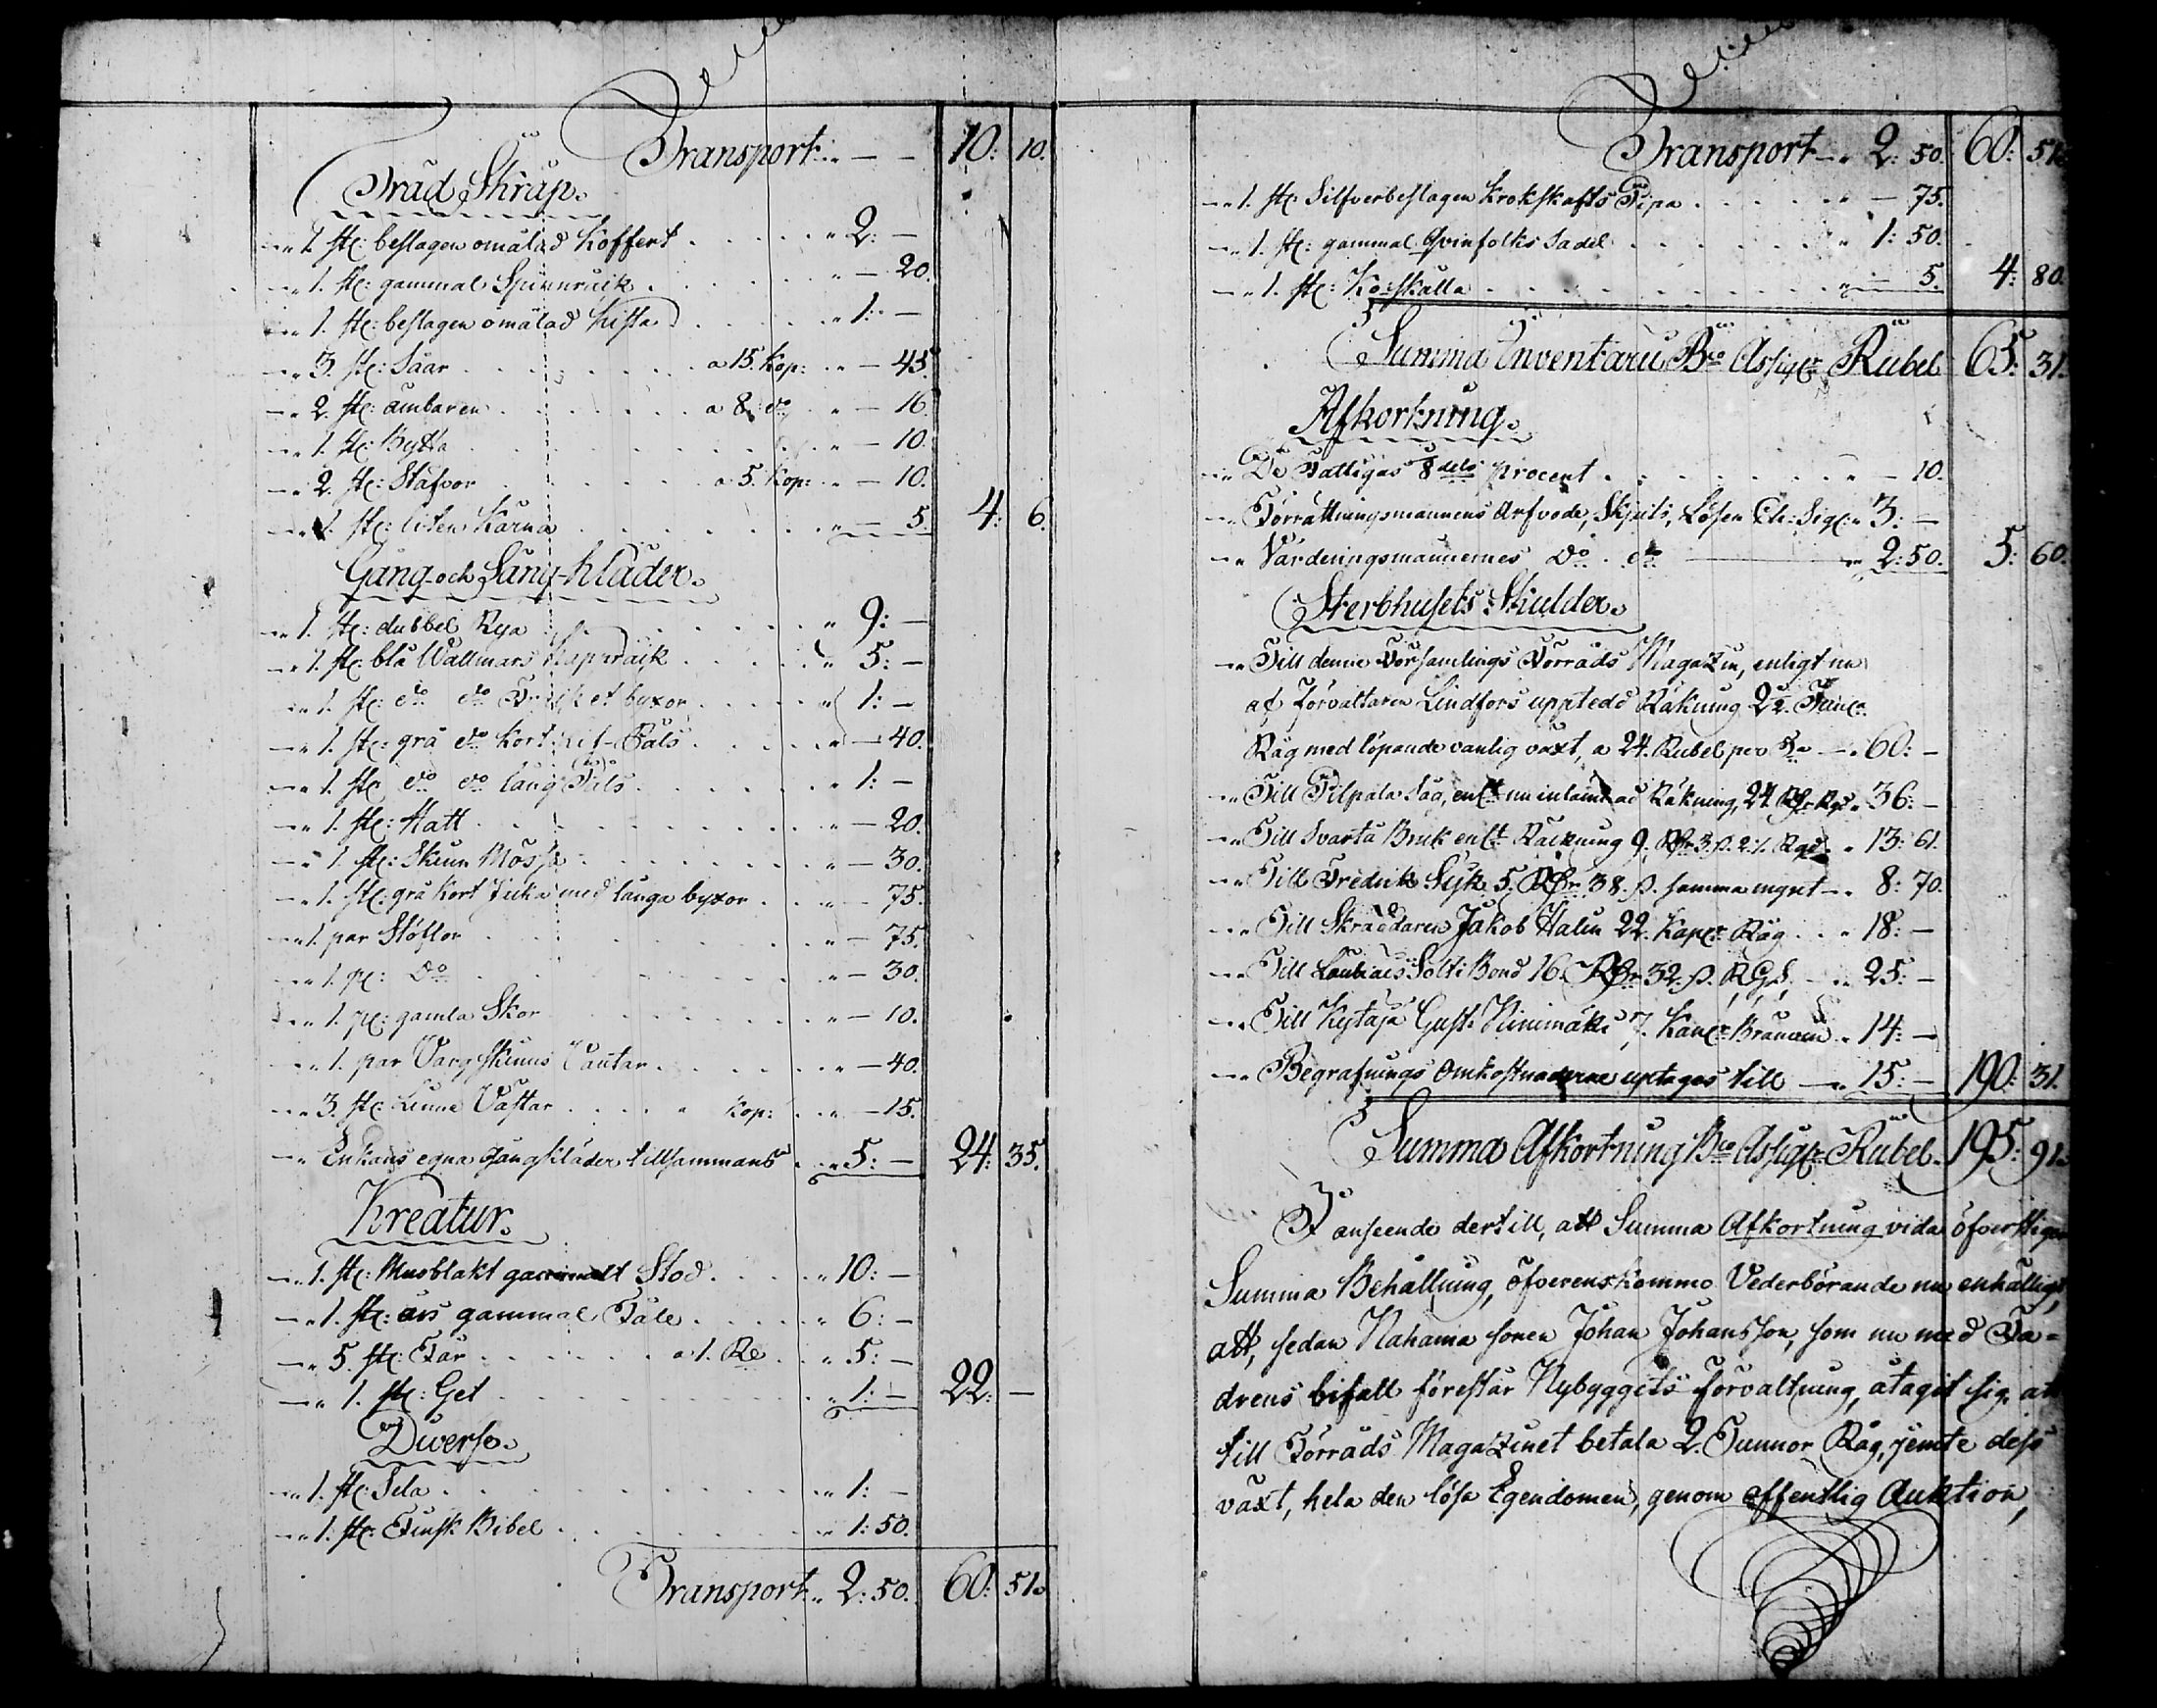 Transport 10: 10.
Träd Skräp.
1. st: beslagen omålad Koffert 2: —
1. st: gammal Spinnråck — 20.
1. st: beslagen omålad Kista 1: —
3. st: Såar a 15. Kop: — 45.
2. st: ämbaren a 8. do — 16.
1. st: Bytta — 10.
2. st: Stäfvor a 5. Kop: — 10.
1. st: liten Kärna — 5. 4: 6.
Gång- och Säng-Kläder.
1. st: dubbel Rya 9: —
1. st: blå Wallmars Kapråck 5: —
1. st: do do et byxor 1: —
1. st: grå do Kort Päls — 40.
1. st: do do lång Päls 1: —
1. st: Hatt — 20.
1. st: Skinn Mössa — 30.
1. st: grå Kort med långa byxor — 75.
1. par Stöflor — 75.
1. p: Do — 30.
1. p: gamla Skor — 10.
1. par Vargskinns Vantar — 40.
3. st: Linne Västar Kop: — 15.
Enkans egna Gångkläder tillsammans 5: — 24: 35.
Kreatur.
1. st: Musblakt gammalt Stod 10: —
1. st: års gammal Fåle 6: —
5. st: Får a 1. Re 5: —
1. st: Get 1: — 22: —
Diverse.
1. st: Sela 1: —
1. st: Finsk Bibel 1: 50.
Transport 2: 50. 60: 51.
Transport 2: 50. 60: 51.
1. st: Silfverbeslagen Krokskafts Pipa — 75.
1. st: gammal Qvinfolks Sadel 1: 50.
1. st: Ko-skälla — 5. 4: 80.
Summa Inventarii Bco Assign: Rubel 65: 31.
Afkortning.
De Fattigas 8dels procent — 10.
Förrättningsmannens Arfvode, Skjuts, Lösen Ch: Sig: 3: —
Värderingsmännernes Do do 2: 50. 5: 60.
Sterbhusets Skulder.
Till denne Församlings Förråds Magazin, enligt nu
af Förvaltaren Lindfors uppteedd Räkning 2½. Tunr
Råg med löpande vanlig växt, a 24. Rubel per 60: —
Till Pilpala Såg, enlt nu inlämnad Räkning, 24 Rdr Rgs 36: —
Till Svartå Bruk enlt Räkning 9. Rdr 3. s. 2. r. Rgs 13: 61.
Till Fredrik 5. Rdr 38. s. samma mynt 8: 70.
Till Skräddaren Jakob Halin 22. Kapr Råg 18: —
Till Bond 16. Rdr 32. s. RGS. 25: —
Till Kytäjä Gust: Niinimäki 7. Kanr Bränvin 14: —
Begrafnings Omkostnaderne uptages till 15: — 190: 31.
Summa Afkortning Bco Assign: Rubel 195: 91.
I anseende dertill, att Summa Afkortning vida öfverstiger
Summa Behållning, öfverenskommo Vederbörande nu enhälligt,
att, sedan Nahama sonen Johan Johansson, som nu med Fa-
drens bifall förestår Nybyggets förvaltning, åtagit sig, att
till Förråds Magazinet betala 2. Tunnor Råg, jemte dess
växt, hela den lösa Egendomen, genom offentlig Auktion,